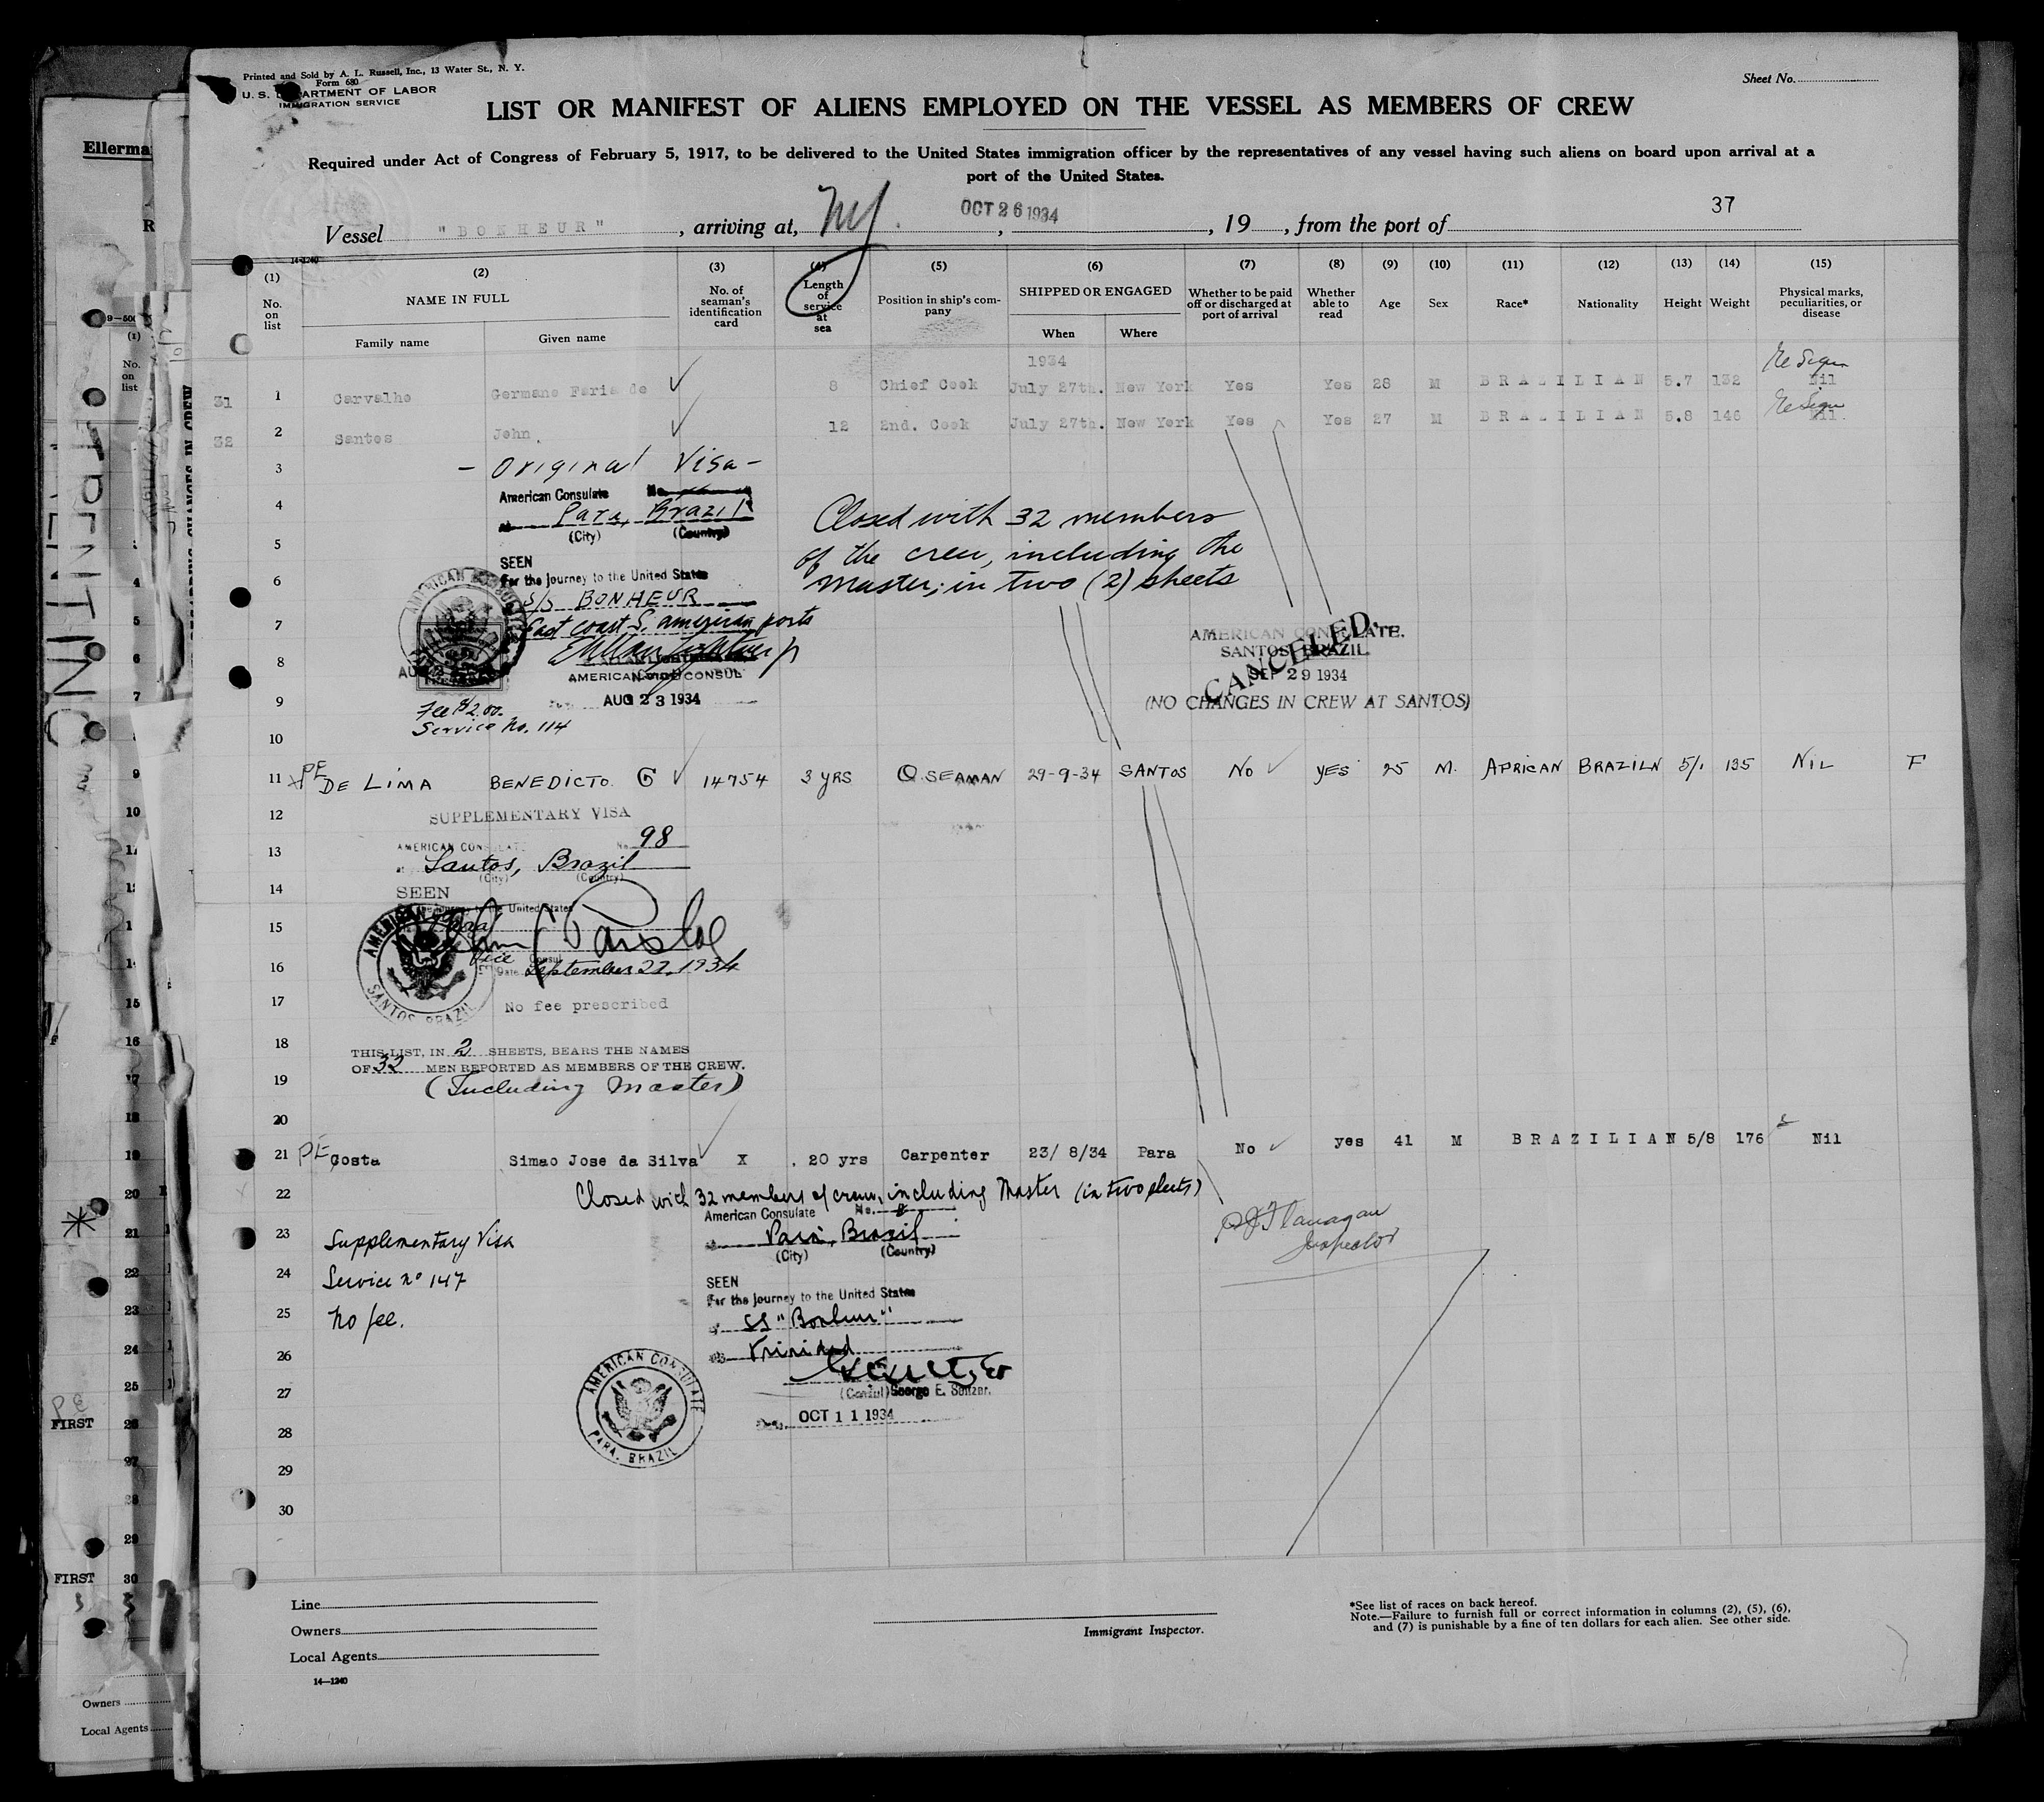 Printed and Sold by A. L. Russell, Inc., 13 Water St., N. Y.
Form 680
U. S. DEPARTMENT OF LABOR
IMMIGRATION SERVICE
Sheet No.
LIST OR MANIFEST OF ALIENS EMPLOYED ON THE VESSEL AS MEMBERS OF CREW
Required under Act of Congress of February 5, 1917, to be delivered to the United States immigration officer by the representatives of any vessel having such aliens on board upon arrival at a
port of the United States.
37
Vessel "BONHEUR", arriving at, NY. OCT 26 1934, 19, from the port of
14-1240
(1) (2) (3) (4) (5) (6) (7) (8) (9) (10) (11) (12) (13) (14) (15)
No. on list
NAME IN FULL
Family name Given name
No. of seaman's identification card
Length of service at sea
Position in ship's company
SHIPPED OR ENGAGED
When Where
Whether to be paid off or discharged at port of arrival
Whether able to read
Age
Sex
Race*
Nationality
Height
Weight
Physical marks, peculiarities, or disease
1934
31 1 Carvalho Germano Faria de 8 Chief Cook July 27th. New York Yes Yes 28 M BRAZILIAN 5.7 132 Nil
32 2 Santos John. 12 2nd. Cook July 27th. New York Yes Yes 27 M BRAZILIAN 5.8 146 Nil.
3 - Original Visa -
American Consulate
4 Para, Brazil
(City) (Country)
Closed with 32 members
of the crew, including the
Master; in two (2) sheets
5
SEEN
6 For the journey to the United States
S/S BONHEUR
7 East coast S. american ports
8
AMERICAN CONSUL
9 AUG 23 1934
Fee $2.00.
Service No. 114
AMERICAN CONSULATE.
SANTOS, BRAZIL
SEP 29 1934
CANCELED.
(NO CHANGES IN CREW AT SANTOS)
10
11 PE DE LIMA BENEDICTO G 14754 3 YRS O. SEAMAN 29-9-34 SANTOS NO YES 25 M. AFRICAN BRAZILN 5/1 135 NIL F
12 SUPPLEMENTARY VISA
AMERICAN CONSULATE No. 98
13 Santos, Brazil
(City) (Country)
14 SEEN
For the journey to the United States
15
Vice Consul
16 Date September 27, 1934
AMERICAN
SANTOS BRAZIL
17 No fee prescribed
18 THIS LIST, IN 2 SHEETS, BEARS THE NAMES
OF 32 MEN REPORTED AS MEMBERS OF THE CREW.
19 (Including Master)
20
21 PE Costa Simao Jose da Silva X . 20 yrs Carpenter 23/ 8/34 Para No yes 41 M BRAZILIAN 5/8 176 Nil
22 Closed with 32 members of crew, including Master (in two sheets)
American Consulate No.
23 Supplementary Visa
Pará, Brazil
(City) (Country)
Flanagan
Inspector
24 Service no 147
SEEN
For the journey to the United States
25 No fee.
SS "Bonheur"
26 Trinidad
27 (Consul) George E. Seltzer.
OCT 11 1934
AMERICAN CONSULATE
PARA, BRAZIL
28
29
30
Line
Owners
Local Agents
14-1240
Immigrant Inspector.
*See list of races on back hereof.
Note.—Failure to furnish full or correct information in columns (2), (5), (6),
and (7) is punishable by a fine of ten dollars for each alien. See other side.
Ellerma
(1)
No. on list
FIRST
FIRST
Owners
Local Agents